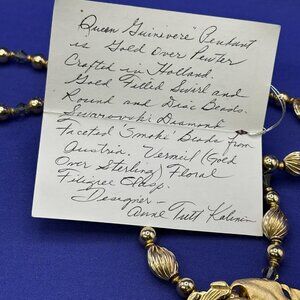 "Queen Guinevere" Pendant
is Gold Over Pewter
Crafted in Holland.
Gold Filled Swirl and
Round and Disc Beads.
Swarovski Diamond
Faceted 'Smoke' Beads from
Austria. Vermeil (Gold
Over Sterling) Floral
Filigree Clasp.
Designer -
Anne Tutt